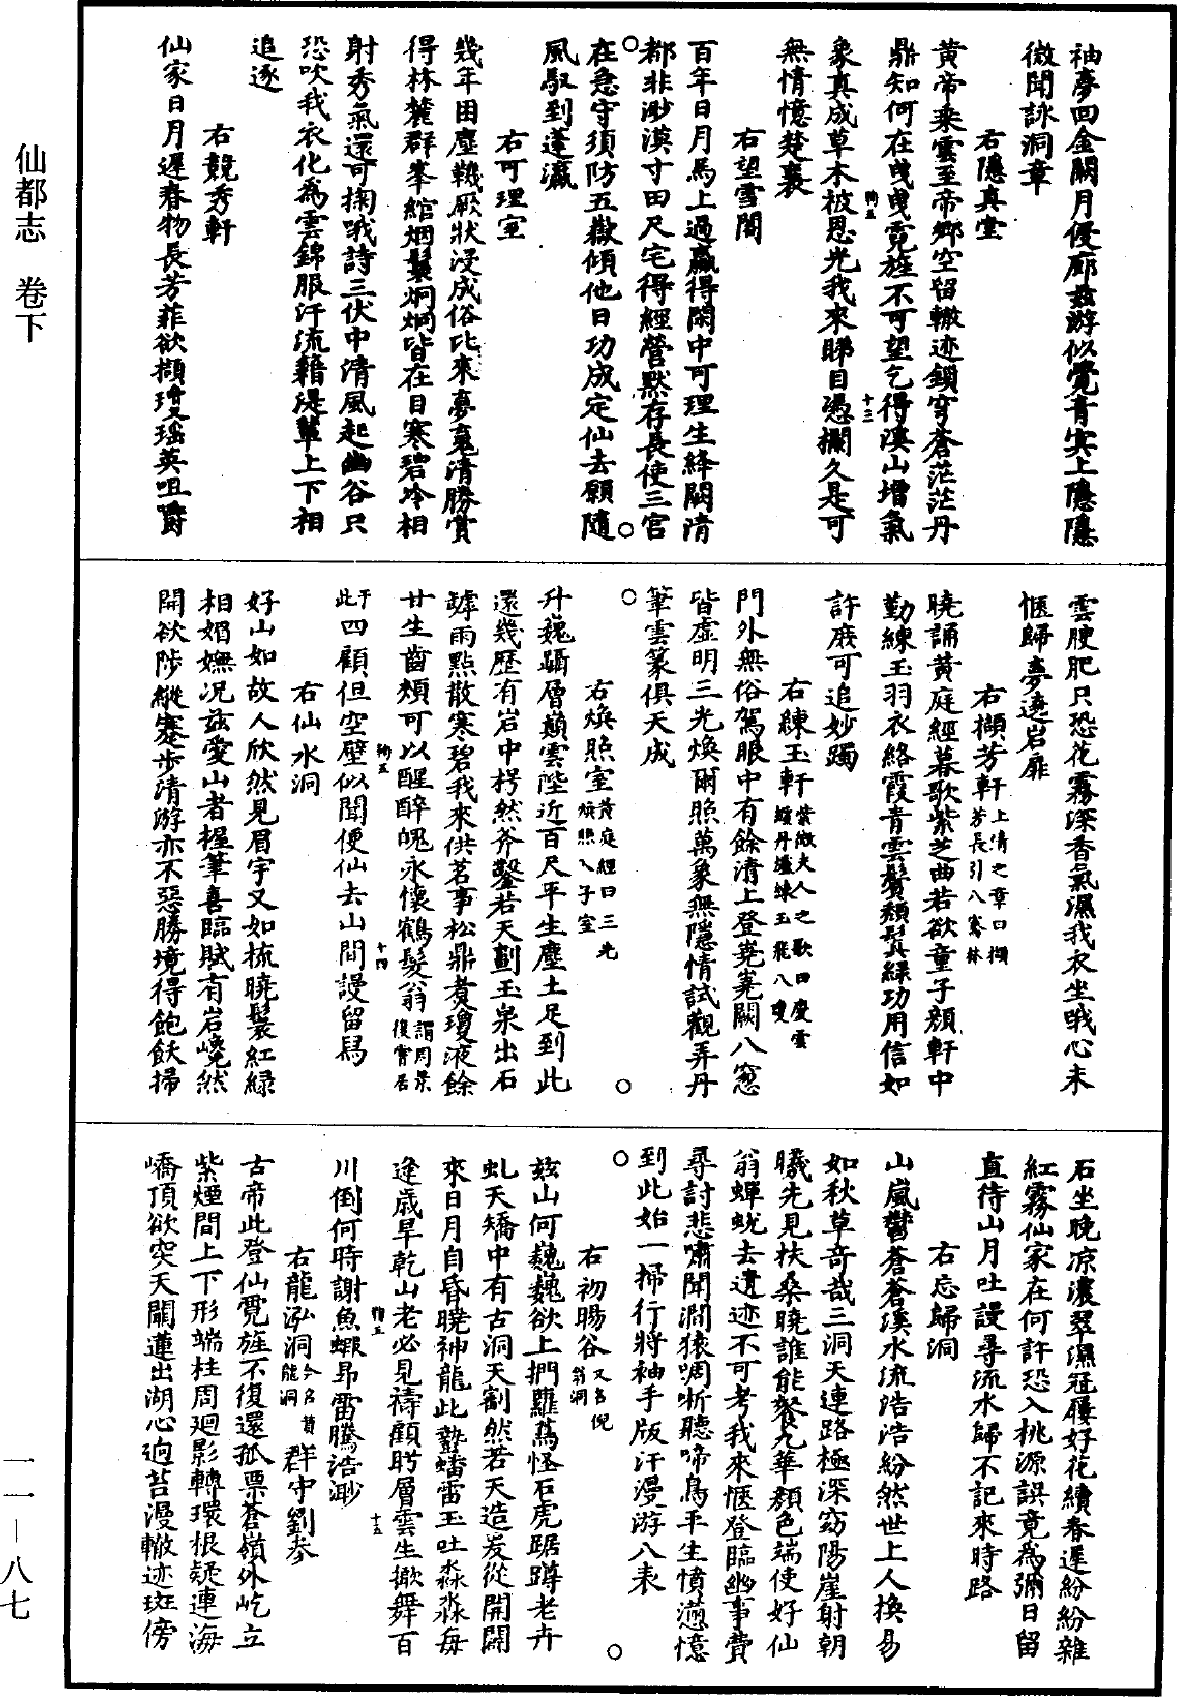 仙都志　卷下
袖夢回金闕月侵廊茲游似覺青宾上隱隱
微聞詠洞章
右隱真堂
黃帝乘雲至帝鄉空留轍迹鎖穹蒼茫茫丹
鼎知何在曳曳霓旌不可望乞得溪山增氣
象真成草木被恩光我來睇目憑攔久是可
無情憶楚襄
右望雪閣
百年日月馬上過贏得閑中可理生絳闕清
都非渺漠寸田尺宅得經營默存長使三宮
在急守須防五嶽傾他日功成定仙去願隨
風馭到蓬瀛
右可理室
幾年困塵鞿厭狀浸成俗比來夢寬清勝賞
得林麓群峯綰烟鬟炯炯皆在目寒碧冷相
射秀氣還可掬哦詩三伏中清風起幽谷只
恐吹我衣化為雲錦服汗流藉湜輩上下相
追逐
右競秀軒
仙家日月遲春物長芳菲欲擷瓊瑤英咀嚼
雲腴肥只恐花霧深香氣濕我衣坐哦心未
愜歸夢遶岩扉
右擷芳軒上清之章曰擷芳長引八騫林
曉誦黃庭經暮歌紫芝曲若欲童子顏軒中
勤練玉羽衣絡霞青雲鬢顏鬂綠功用信如
許庶可追妙躅
右練玉軒紫微夫人之歌曰慶雲纏丹爐練玉飛八瓊
門外無俗駕眼中有餘清上登嶤嶤闕八窻
皆虛明三光煥爾照萬象無隱情試觀弄丹
筆雲篆俱天成
右煥照室黃庭經曰三光煥照入子室
升巍躡層巔雲陛近百尺平生塵土足到此
還幾歷有岩中楞然斧鑿若天劃玉泉出石
罅雨點散寒碧我來供茗事松鼎煮瓊液餘
廿生齒頰可以醒醉魄永懷鶴髮翁謂周景復嘗居
于此四顧但空壁似聞便仙去山間謾留舄
右仙水洞
好山如故人欣然見眉宇又如梳曉鬟紅綠
相媚嫵况茲愛山者握筆喜臨賦有岩嶢然
開欲陟縱蹇步清游亦不惡勝境得飽飫掃
石坐晚凉濃翠濕冠屨好花續春遲紛紛雜
紅霧仙家在何許恐入桃源誤竟為彌日留
直待山月吐謾尋流水歸不記來時路
右忘歸洞
山嵐鬱蒼蒼溪水流浩浩紛然世上人換易
如秋草奇哉三洞天連路極深窈陽崖射朝
曦先見扶桑曉誰能餐九華顏色端使好仙
翁蟬蛻去遺迹不可考我來愜登臨幽事費
尋討悲嘯聞澗猿啁哳聽啼鳥平生憤懣憶
到此始一掃行將袖手版汗漫游八表
右初暘谷又名倪翁洞
茲山何巍巍欲上捫蘿蔦怪石虎踞蹲老卉
虬夭矯中有古洞天劃然若天造岌從開闢
來日月自昏曉神龍此蟄蟠雷玉吐淼淼每
逢歲旱乾山老必見禱顧眄層雲生欻舞百
川倒何時謝魚蝦昂雷騰浩渺
右龍泓洞今名黃龍洞　群守劉參
古帝此登仙霓旌不復還孤票蒼嶺外屹立
紫煙間上下形端柱周廻影轉環根疑連海
嶠頂欲突天關蓮出湖心逈苔漫轍迹斑傍
一一－八七